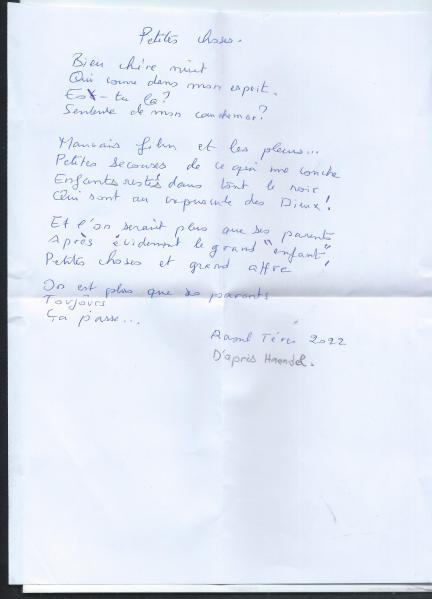 Petites choses.
Bien chère nuit
Qui coure dans mon esprit.
Es-tu là?
Sentence de mon cauchemar?
Mauvais film et les pleurs...
Petites secousses de ce qui me couche
Enfants restés dans tout le noir
Qui sont au crépuscule des Dieux!
Et l'on serait plus que ses parents
Après évidement le grand "enfant"
Petites choses et grand affre
On est plus que ses parents
Toujours
Ça passe...
Raoul 2022
D'après Haendel.